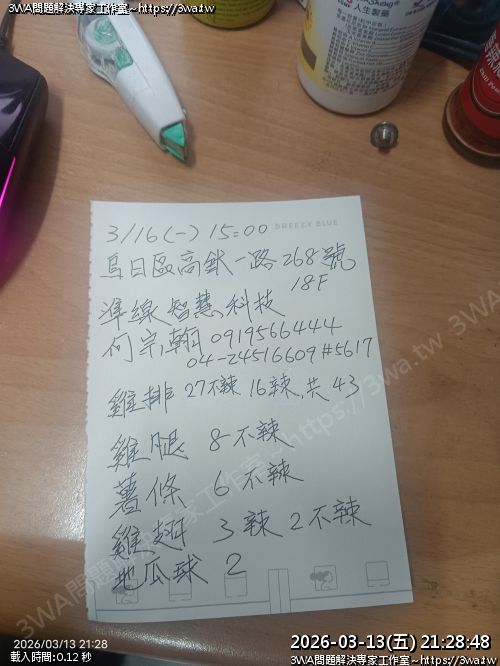 3WA問題解決專家工作室~https://3wa.tw
人生製藥
BREEZY BLUE
3/16(一) 15:00
烏日區高鐵一路268號
18F
準線智慧科技
何宗翰 0919566444
04-24516609#5617
雞排 27不辣 16辣,共43
雞腿 8不辣
薯條 6不辣
雞翅 3辣 2不辣
地瓜球 2
3WA問題解決專家工作室~https://3wa.tw
2026/03/13 21:28
載入時間:0.12 秒
2026-03-13(五) 21:28:48
3WA問題解決專家工作室~https://3wa.tw